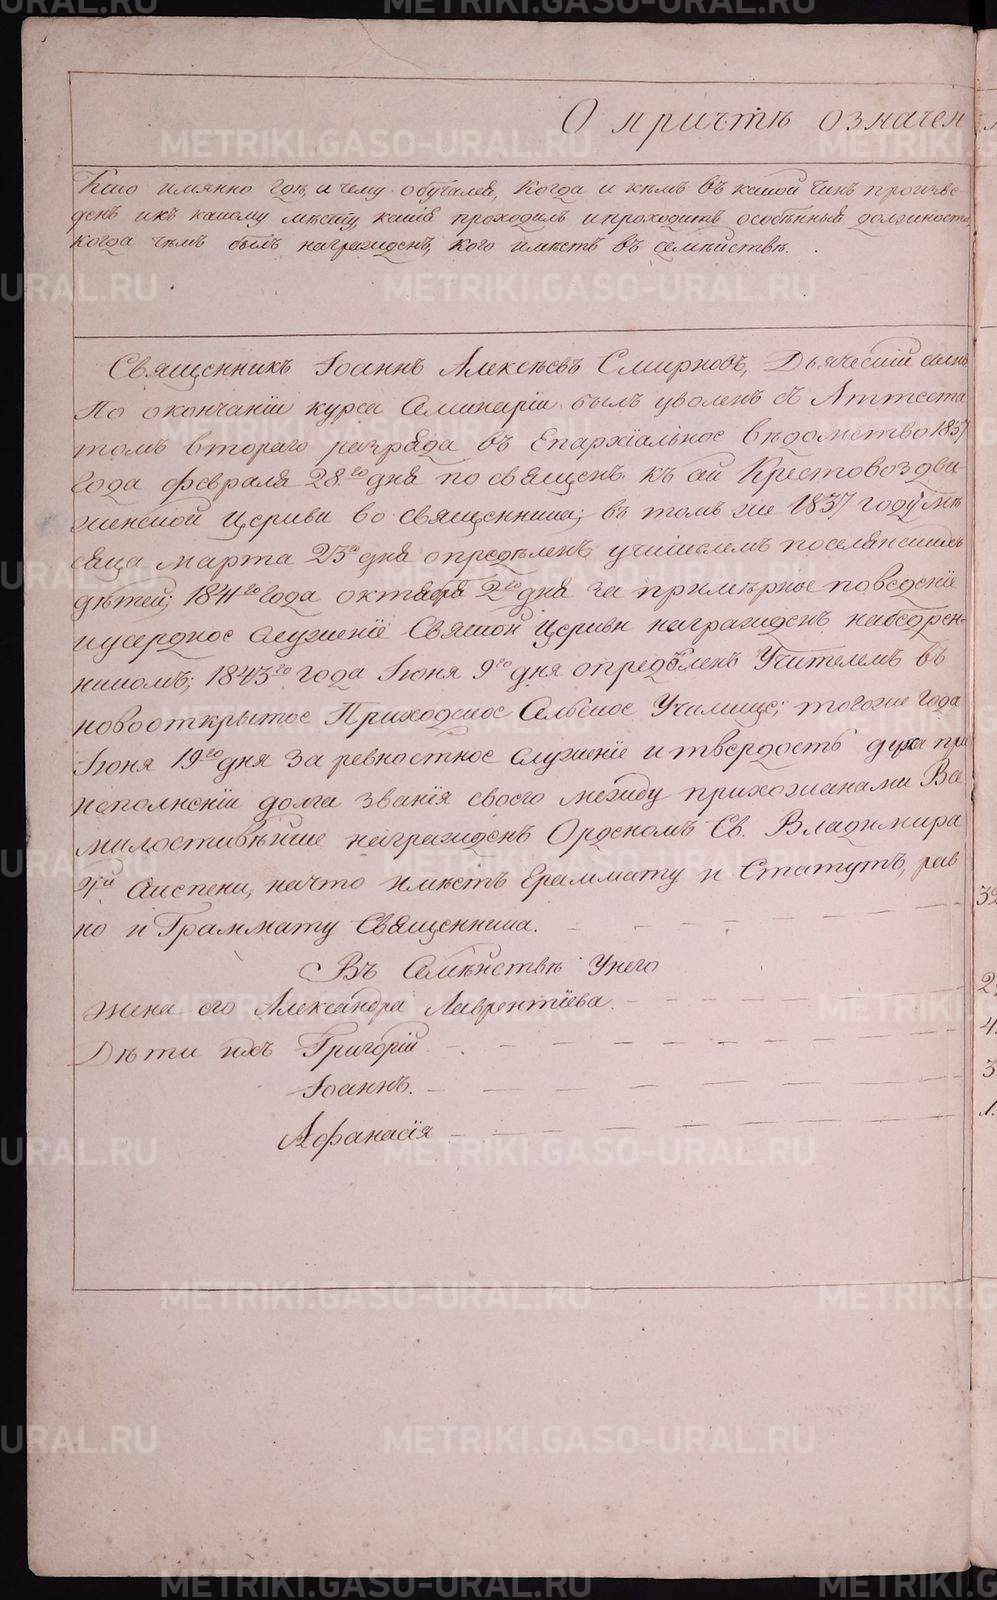 О причтѣ означен
Кто имянно гдѣ, и чему обучался, Когда и кѣмъ въ какой Чинъ произве-
денъ икъ какому мѣсту, какія проходилъ ипроходитъ особенныя должности,
когда чѣмъ былъ награжденъ, кого имѣетъ въ семѣйствѣ.
Священникъ Іоаннъ Алексѣевъ Смирновъ, Дьяческій сынъ
По окончаніи курса Семинаріи былъ уволенъ съ Аттеста
томъ втораго разряда въ Епархіальное вѣдомство 1837
года февраля 28го дня посвященъ къ сей Крестовоздви-
женской Церкви во священника; въ томъ же 1837 году мѣ
сяца марта 25го дня опредѣленъ учителемъ поселянскихъ
дѣтей; 1841го года октября 2го дня за примѣрное поведеніе
иусердное служеніе Святой Церкви награжденъ набедрен-
никомъ; 1843го года Іюня 9го дня опредѣленъ Учителемъ въ
новооткрытое Приходское Сельское Училище; тогоже года
Іюня 19го дня за ревностное служеніе и твердость духа при
исполненіи долга званія своего между прихожанами Все
милостивѣйше награжденъ Орденомъ Св. Владимира
4й степени, начто имѣетъ Граммату и Статутъ, рав
но и Граммату Священника.
32
Въ Семѣйствѣ Унего
жена его Александра Лаврентіева
2
Дѣти ихъ Григорій
4
Іоаннъ.
3
Афанасія
1.
METRIKI.GASO-URAL.RU